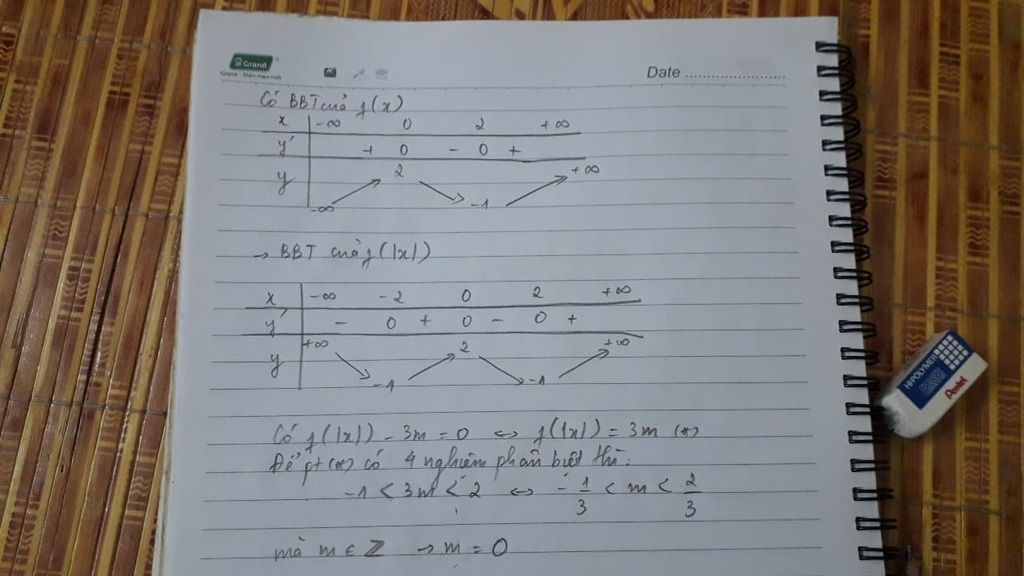 Grand
Date
Có BBT của f(x)
x -∞ 0 2 +∞
y' + 0 - 0 +
y -∞ 2 -1 +∞
→ BBT của f(|x|)
x -∞ -2 0 2 +∞
y' - 0 + 0 - 0 +
y +∞ -1 2 -1 +∞
Có f(|x|) - 3m = 0 ⇔ f(|x|) = 3m (*)
Để pt (*) có 4 nghiệm phân biệt thì:
-1 < 3m < 2 ⇔ -1/3 < m < 2/3
mà m ∈ Z → m = 0
HI-POLYMER
Pentel